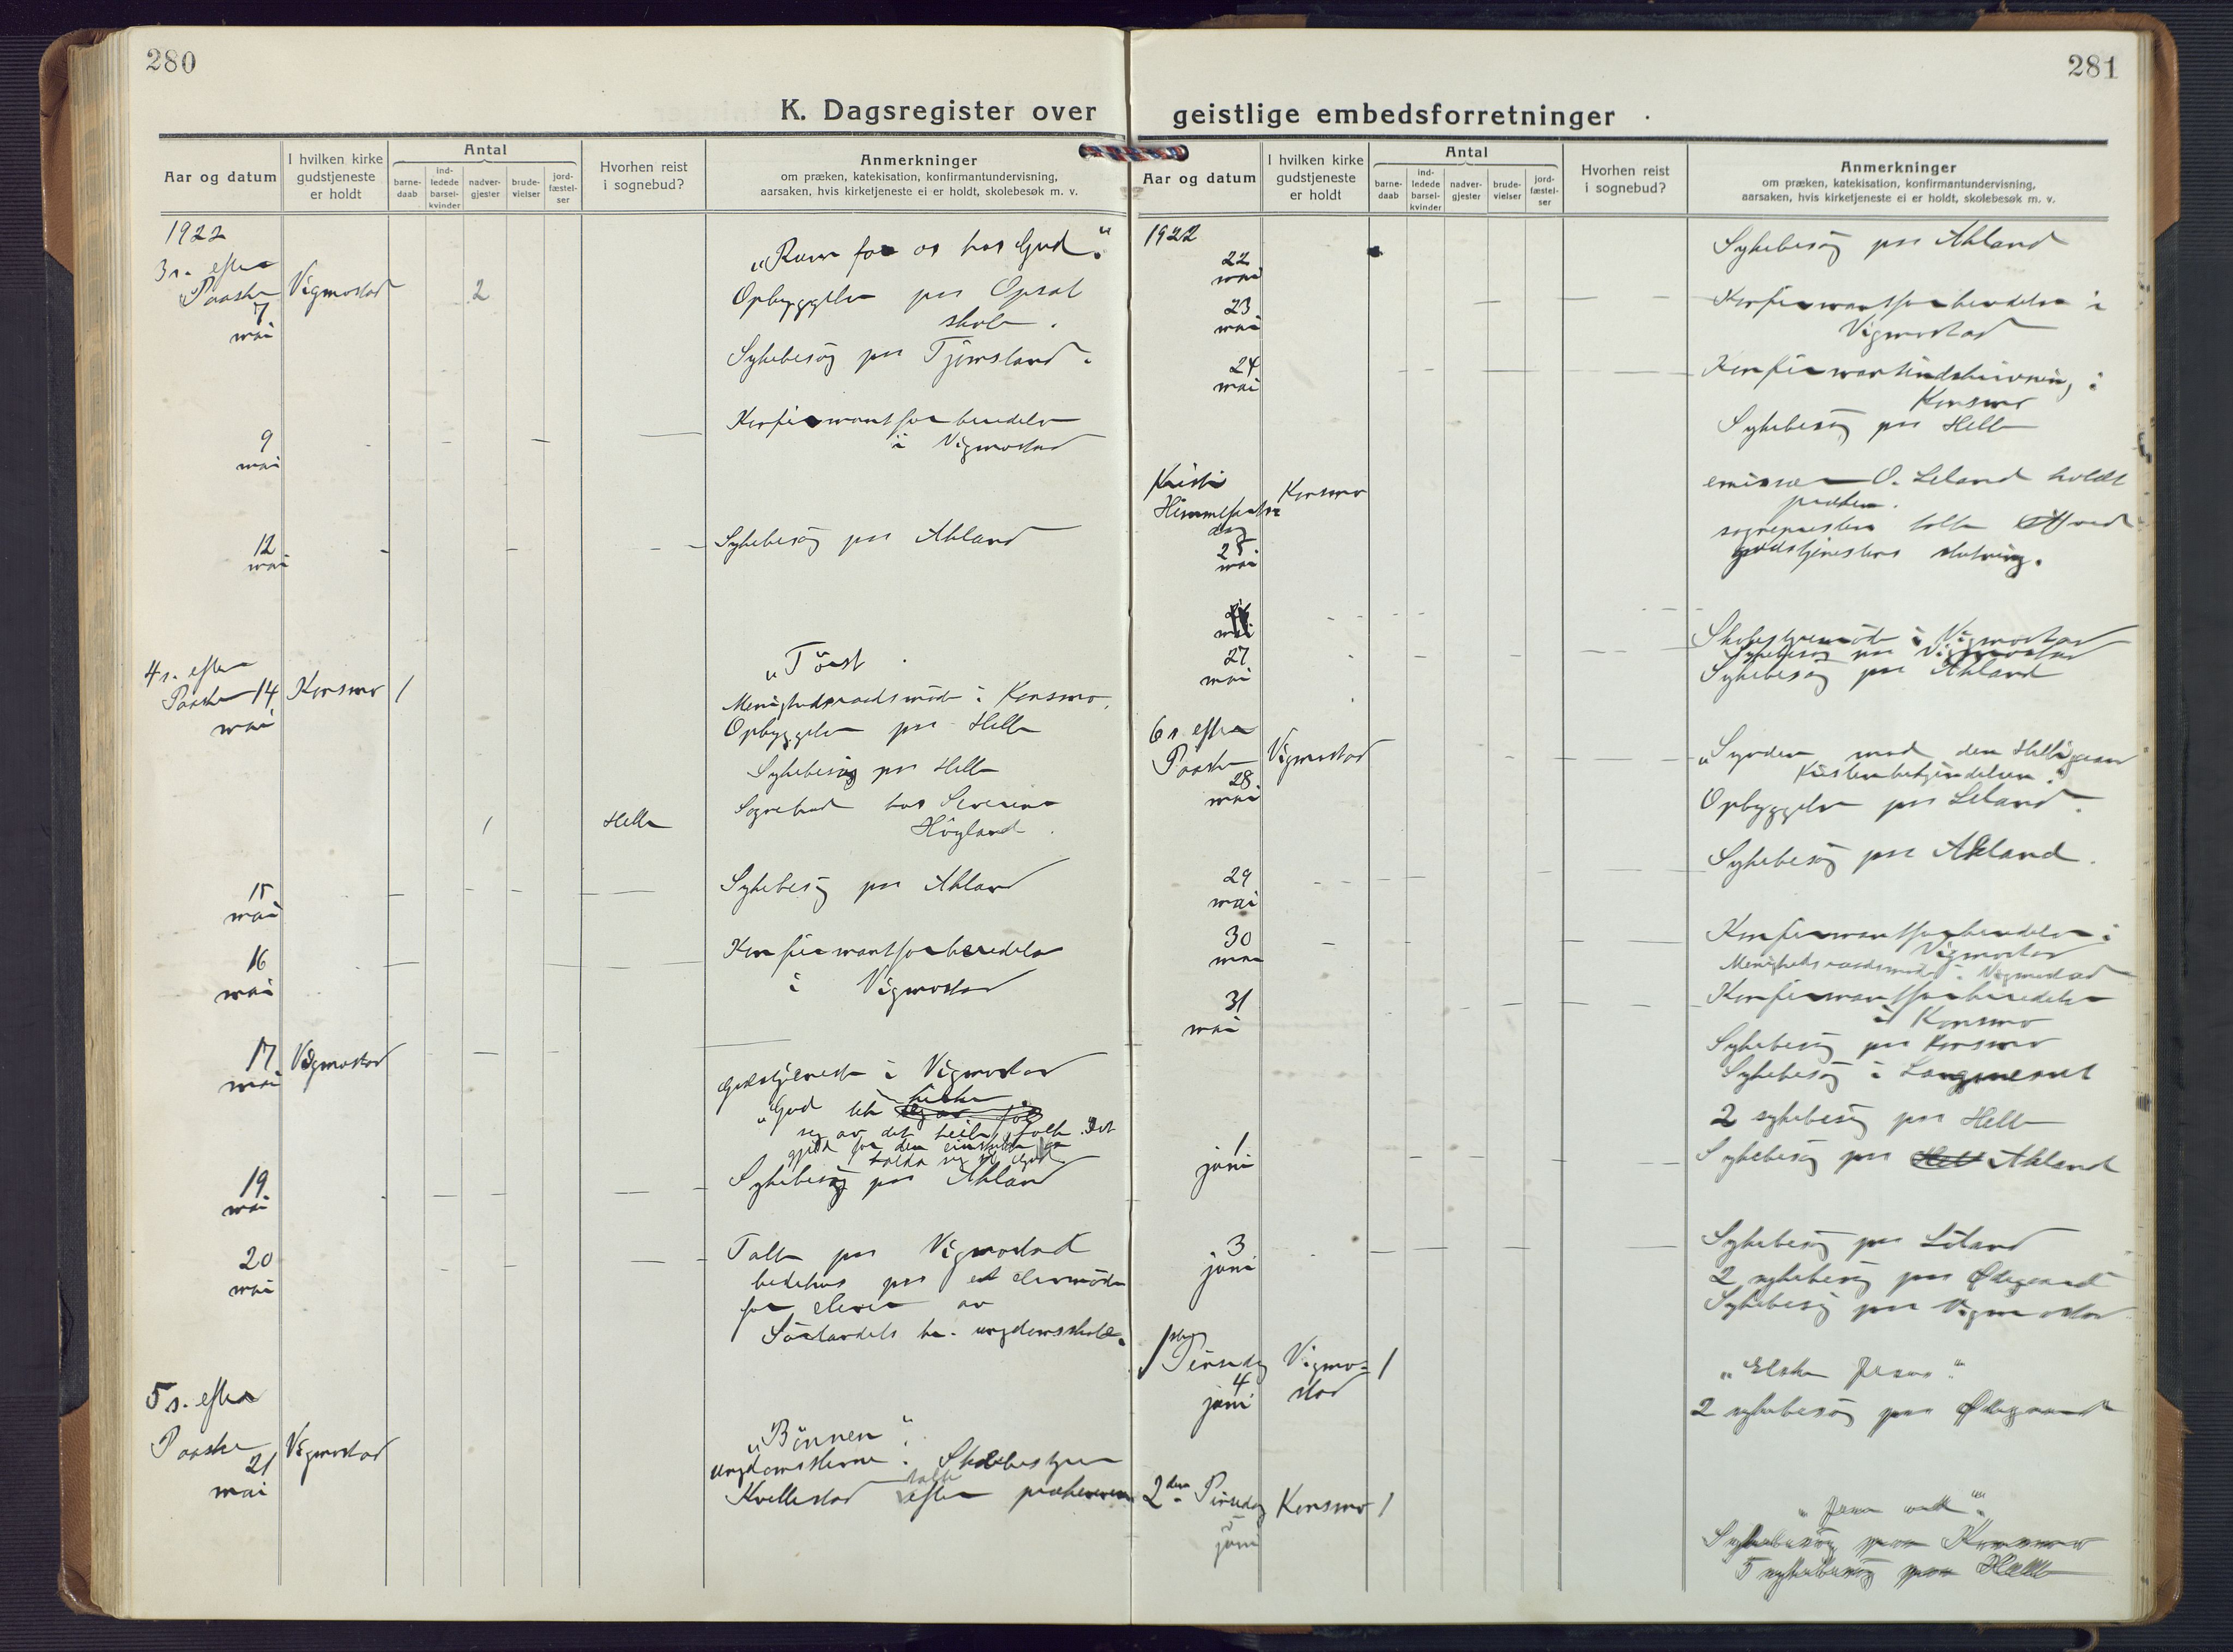 280
K. Dagsregister over
Aar og datum
I hvilken kirke
gudstjeneste
er holdt
Antal
barne-
daab
ind-
ledede
barsel-
kvinder
nadver-
gjester
brude-
vielser
jord-
fæstel-
ser
Hvorhen reist
i sognebud?
Anmerkninger
om præken, katekisation, konfirmantundervisning,
aarsaken, hvis kirketjeneste ei er holdt, skolebesøk m. v.
1922
3 s. efter
Paaske Vigmostad 2
7
mai
„Rum for os hos Gud“.
Opbyggelse paa Opsal
skole.
Sykebesøg paa Tjomsland.
9
mai
Konfirmantforberedelse
i Vigmostad
12
mai
Sykebesøg paa Ahland
4 s. efter
Paaske 14 Konsmo 1
mai
„Törst
Menighedsraadsmöde i Konsmo.
Opbyggelse paa Helle
Sykebesøg paa Helle
1 Helle Sognebud hos Severine
Höyland.
15
mai
Sykebesøg paa Ahland
16
mai
Konfirmantforberedelse
i Vigmostad
17 Vigmostad
mai
Gudstjeneste i Vigmostad
kirke
„Gud
seg av det heile folk. Det
gjeld for den einskilde
halda seg til Gud
19.
mai
Sykebesøg paa Ahland
20
mai
Talte paa Vigmostad
bedehus paa et elevmöde
for elever av
Sörlandets kr. ungdomsskole.
5 s. efter
Paaske Vigmostad
21
mai
„Bönnen“.
Skolebestyrer
Kvellestad talte efter prækenen
281
geistlige embedsforretninger
Aar og datum
I hvilken kirke
gudstjeneste
er holdt
Antal
barne-
daab
ind-
ledede
barsel-
kvinder
nadver-
gjester
brude-
vielser
jord-
fæstel-
ser
Hvorhen reist
i sognebud?
Anmerkninger
om præken, katekisation, konfirmantundervisning,
aarsaken, hvis kirketjeneste ei er holdt, skolebesøk m. v.
1922
22
mai
Sykebesøg paa Ahland
23
mai
Konfirmantforberedelse i
Vigmostad
24
mai
Konfirmantindskrivning i
Konsmo
Sykebesøg paa Helle
Kristi
Himmelfarts Konsmo
dag
25
mai
emissær O. Leland holdt
præken.
sognepresten talte ved
gudstjenestens slutning.
mai
Skolestyremöde i Vigmostad
Sykebesøg paa Vigmostad
27
mai
Sykebesøg paa Ahland
6 s. efter
Paaske Vigmostad
28
mai
„Synden mod den Helligaand
Kristenbekjendelsen.“
Opbyggelse paa Leland.
Sykebesøg paa Ahland.
29
mai
30
mai
Konfirmantforberedelse i
Vigmostad
Menighedsraadsmöde i Vigmostad
31
mai
Konfirmantforberedelse
i Konsmo
Sykebesøg paa Konsmo
Sykebesøg i Langmesnet
2 sykebesøg paa Helle
1
juni
Sykebesøg paa Helle Ahland
3
juni
Sykebesøg paa Leland
2 sykebesøg paa Ødegaard
Sykebesøg paa Vigmostad
1ste
Pinsedag Vigmo- 1
4 stad
juni
„Elsker Jesus“.
2 sykebesøg paa Ødegaard
2den Pinsedag Konsmo 1
5
juni
Sykebesøg paa Konsmo
5 sykebesøg paa Helle